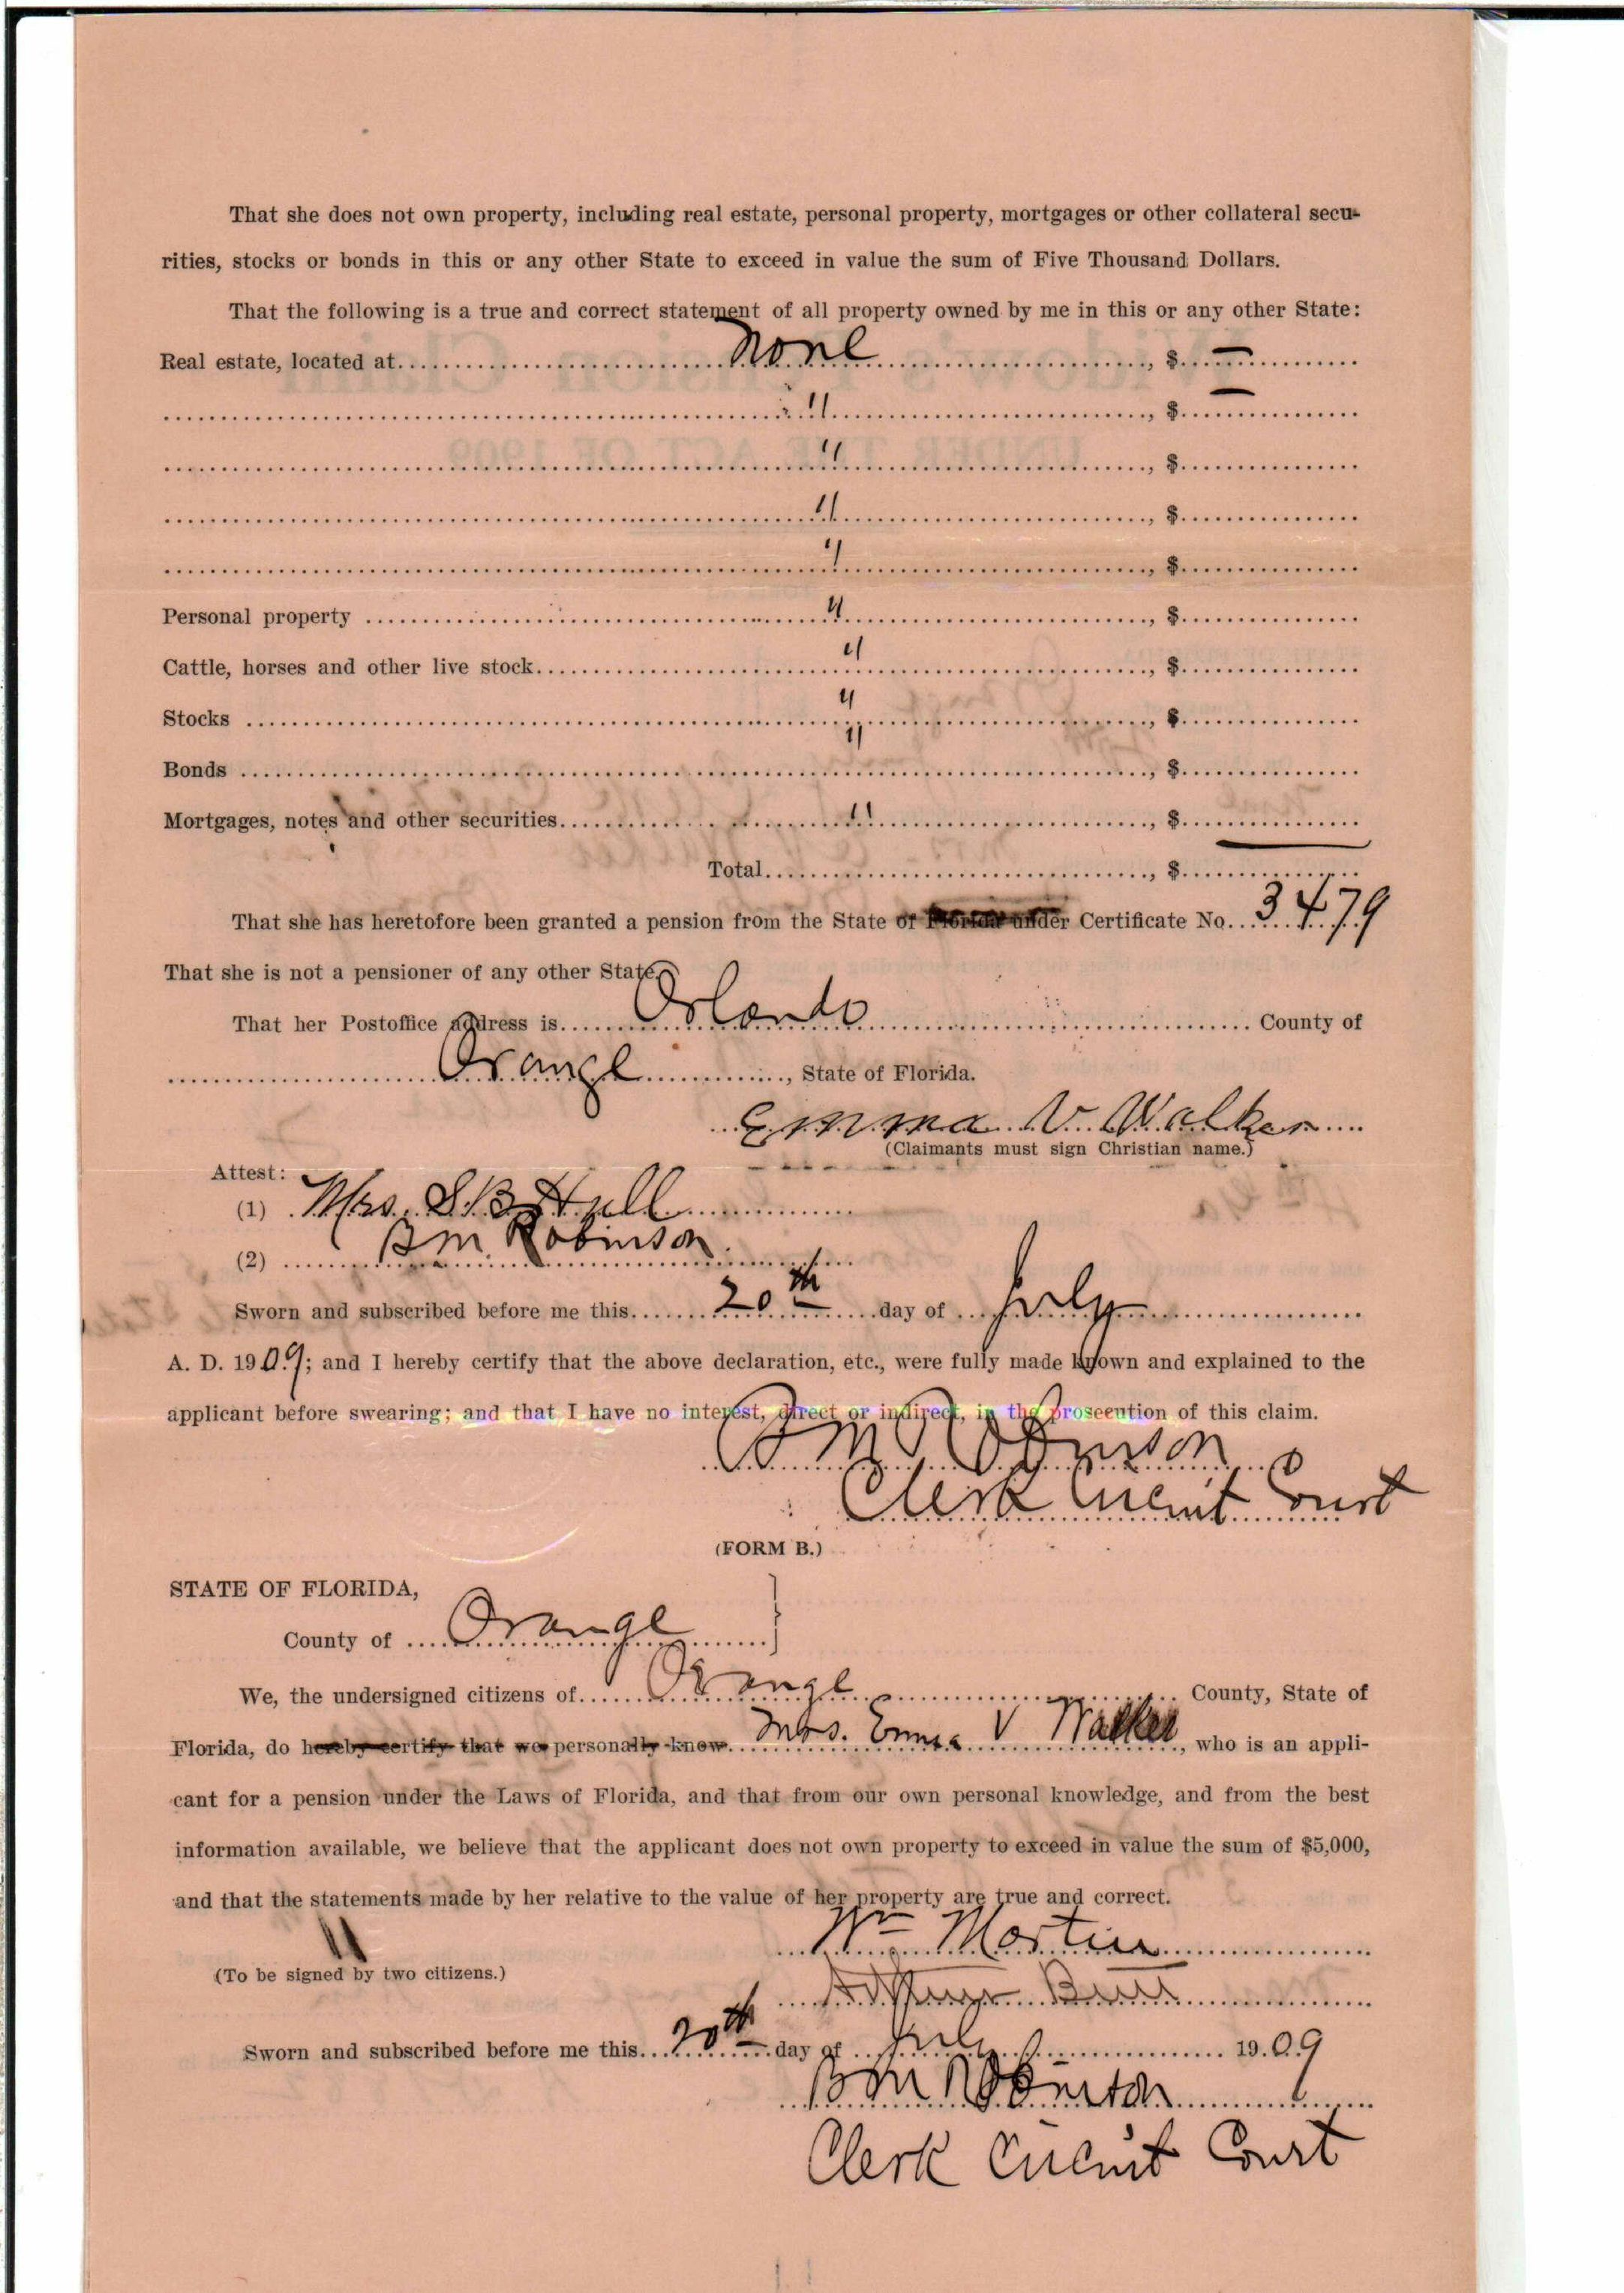 That she does not own property, including real estate, personal property, mortgages or other collateral secu-
rities, stocks or bonds in this or any other State to exceed in value the sum of Five Thousand Dollars.
That the following is a true and correct statement of all property owned by me in this or any other State:
Real estate, located at None , $ —
" , $ —
" , $
" , $
" , $
Personal property " , $
Cattle, horses and other live stock " , $
Stocks " , $
Bonds " , $
Mortgages, notes and other securities " , $
Total , $
That she has heretofore been granted a pension from the State of Florida under Certificate No. 3479
That she is not a pensioner of any other State.
That her Postoffice address is Orlando County of
Orange , State of Florida.
Emma V. Walker
(Claimants must sign Christian name.)
Attest:
(1) Mrs. S. B. Hull
(2) B M Robinson
Sworn and subscribed before me this 20th day of July
A. D. 1909; and I hereby certify that the above declaration, etc., were fully made known and explained to the
applicant before swearing; and that I have no interest, direct or indirect, in the prosecution of this claim.
B M Robinson
Clerk Circuit Court
(FORM B.)
STATE OF FLORIDA,
County of Orange
We, the undersigned citizens of Orange County, State of
Florida, do hereby certify that we personally know Mrs. Emma V Walker, who is an appli-
cant for a pension under the Laws of Florida, and that from our own personal knowledge, and from the best
information available, we believe that the applicant does not own property to exceed in value the sum of $5,000,
and that the statements made by her relative to the value of her property are true and correct.
Wm Martin
(To be signed by two citizens.)
Sworn and subscribed before me this 20th day of July 1909
B M Robinson
Clerk Circuit Court